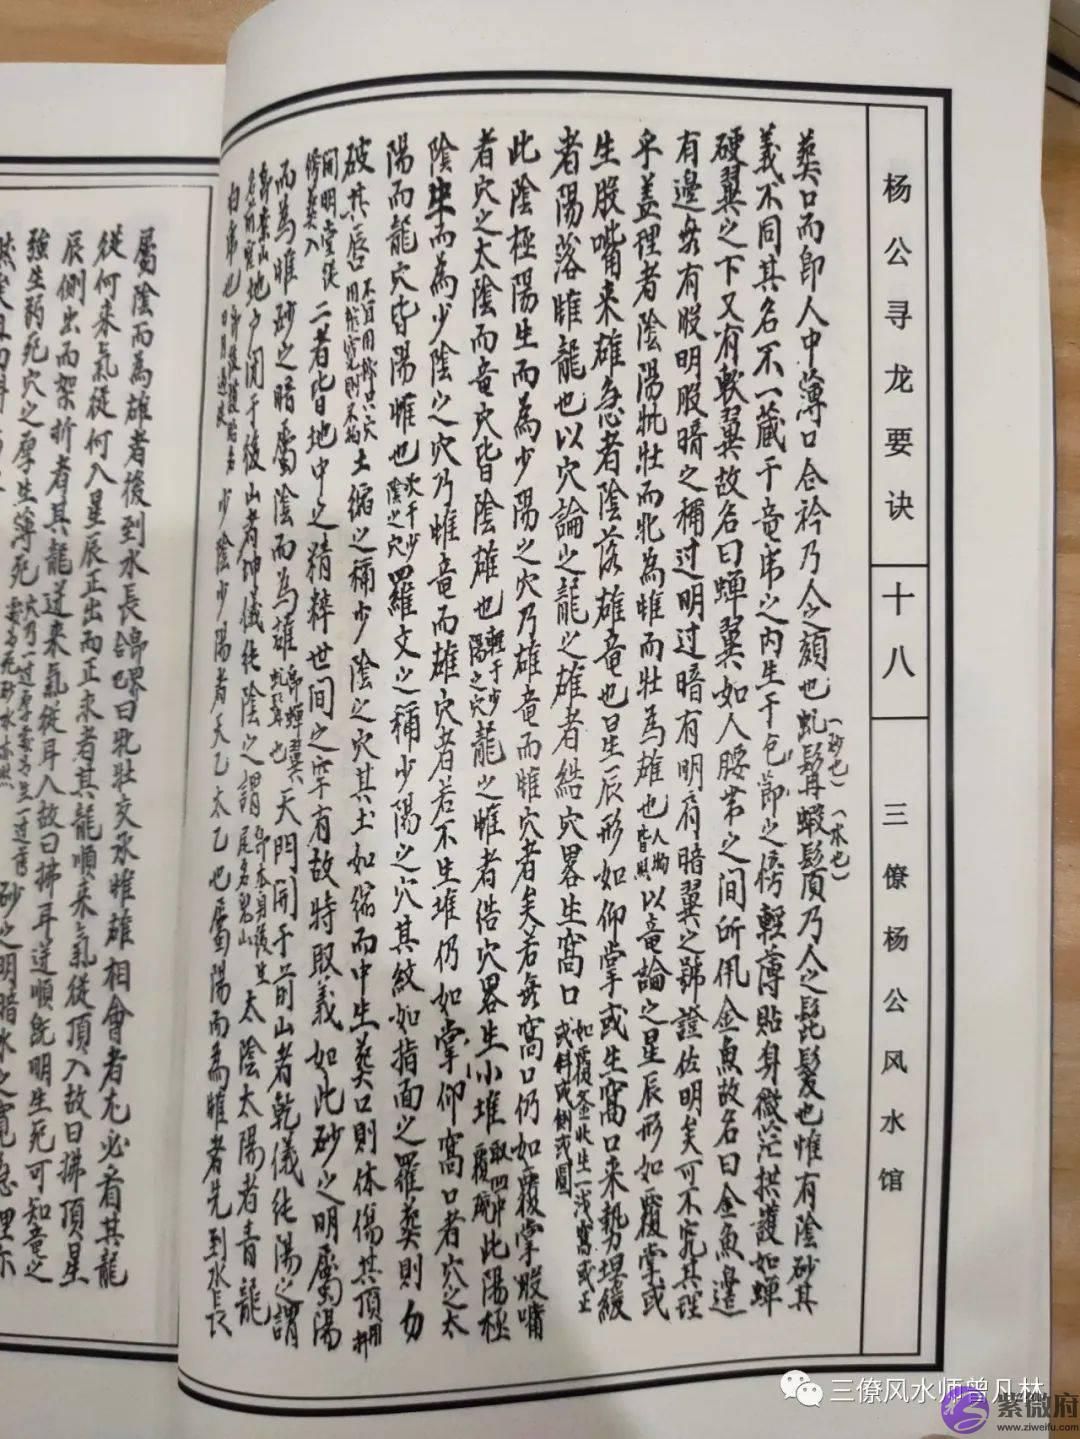 杨公寻龙要诀
十八
三僚杨公风水馆
葵口而即人中薄口合衿乃人之頦也虬髯蝦鬚頂乃人之髭髮也惟有陰砂其
（砂也）（水也）
義不同其名不一藏于竜虎之内生于包節之傍輕薄貼身微茫拱護如蟬
硬翼之下又有軟翼故名曰蟬翼如人腰帶之間所佩金魚故名曰金魚邊
有邊無有股明股暗之稱過明過暗有明肩暗翼之號證佐明矣可不究其理
乎蓋理者陰陽牝牡而牝為雌而牡為雄也人物皆然以竜論之星辰形如覆掌或
生股嘴来雄急者陰落雄竜也星辰形如仰掌或生窩口来勢堪緩
者陽落雌龍也以穴論之龍之雄者結穴畧生窩口如覆釜此生一浅窩或正或斜或側或圓
此陰極陽生而為少陽之穴乃雄竜而雌穴者矣若無窩口仍如覆掌股嘴
者穴之太陰而竜穴皆陰雄也輕于少陽之穴龍之雌者结穴畧生小堆取四中覆 此陽極
陰生而為少陰之穴乃雌竜而雄穴者若不生堆仍如掌仰窩口者穴之太
陽而龍穴皆陽雌也次于少陰之穴羅文之稱少陽之穴其紋如指面之羅葵則力
破其唇口不宜用 土缩之稱少陰之穴其土如缩而中生葵口則体傷其頂用
開明堂後 葵入二者皆地中之精粹世間之罕有故特取義如此砂之明屬陽
而為雌砂之暗屬陰而為雄即蟬翼虬髯也天門開于前山者乾儀純陽之謂
地户閉于後山者坤儀純陰之謂即本身後 尾名鬼山太陰太陽者青龍
白虎也 少陰少陽者天乙太乙也屬陽而為雌者先到水長
屬陰而為雄者後到水長 界曰牝牡交承雌雄相會者尤必看其龍
從何来氣從何入星辰正出而正求者其龍順来氣從頂入故曰拂頂星
辰側出而架折者其龍逆来氣從耳入故曰拂耳逆順既明生死可知竜之
強生弱死穴之厚生薄死 砂之明暗水之寬急理亦
三僚风水师曾凡林
紫微府
www.ziweifu.com